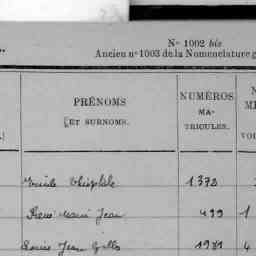 Nº 1002 bis
Ancien nº 1003 de la Nomenclature g
PRÉNOMS
ET SURNOMS.
NUMÉROS
MA-
TRICULES.
N
M
VOI
Emile Théophile 1372
René Marie Jean 499 1
Louis Jean 1981 4